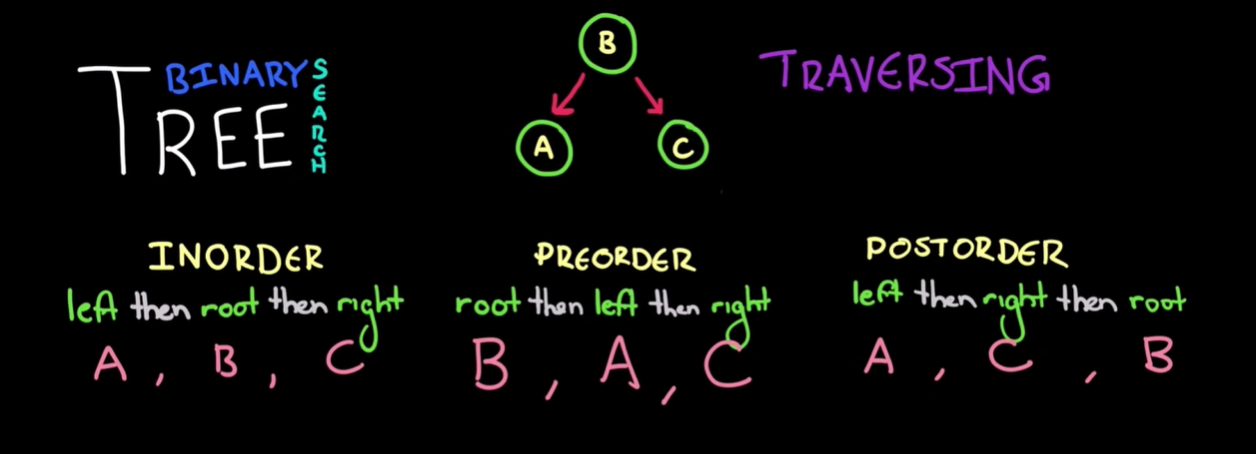 BINARY
TREE
SEARCH
B
A
C
TRAVERSING
INORDER
left then root then right
A , B , C
PREORDER
root then left then right
B , A , C
POSTORDER
left then right then root
A , C , B